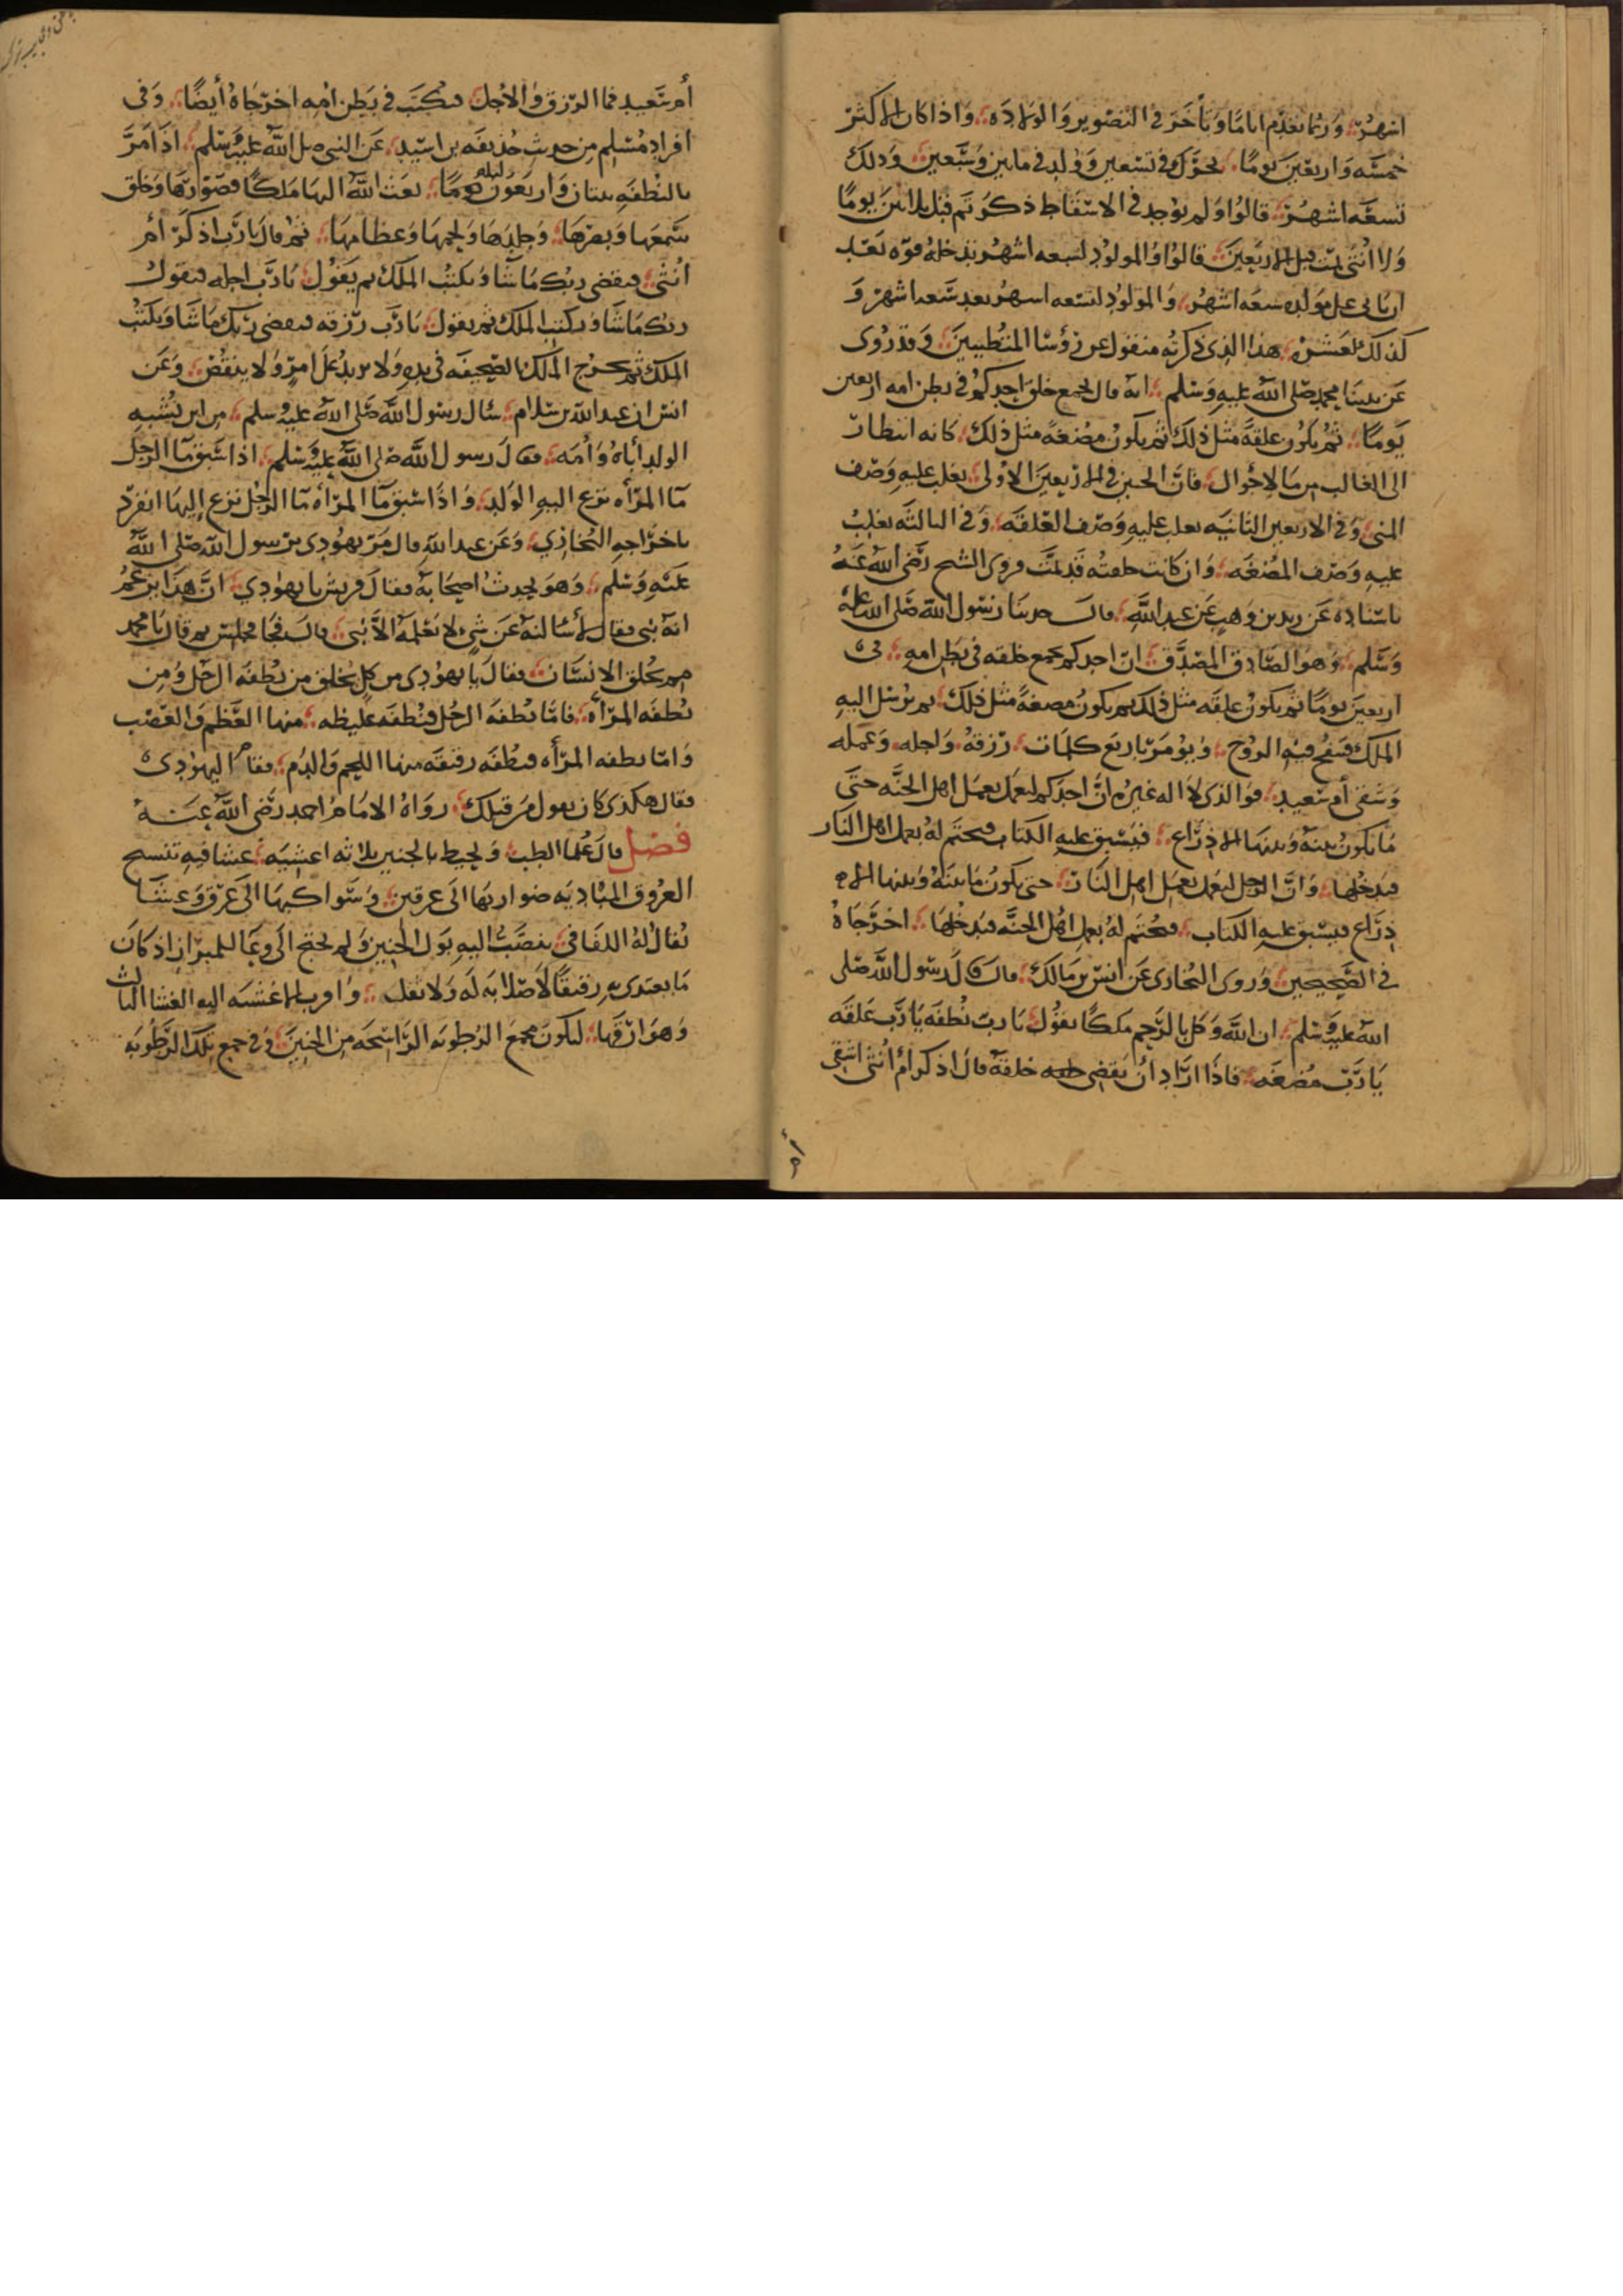 اشهر وربما تقدم اياما وتأخر في التصوير والولادة واذا كان الاكثر
خمسه واربعين يوما تحرك في تسعين وولد في مايتين وسبعين وذلك
تسعه اشهر قالوا ولم يوجد في الاسقاط ذكر تم قبل ثلاثين يوما
ولا انثى تمت قبل الاربعين قالوا والمولود لسبعه اشهر تدخله قوه بعد
ان ياتي على مولده سبعه اشهر والمولود لتسعه اشهر بعد تسعه اشهر و
كذلك لعشر هذا الذي ذكرته منقول عن رؤسا المتطببين وقد روى
عن نبينا محمد صلى الله عليه وسلم انه قال يجمع خلق احدكم في بطن امه اربعين
يوما ثم يكون علقة مثل ذلك ثم يكون مضغة مثل ذلك كانه انتظار
الى الغالب من الاحوال فان الجنين في الاربعين الاولى يغلب عليه وصف
المني وفي الاربعين الثانيه يغلب عليه وصف العلقه وفي الثالثه يغلب
عليه وصف المضغه وان كانت خلقته قد تمت وروى الشيخ رضى الله عنه
باسناده عن زيد بن وهب عن عبد الله قال حدثنا رسول الله صلى الله عليه
وسلم وهو الصادق المصدق ان احدكم يجمع خلقه في بطن امه في
اربعين يوما ثم يكون علقه مثل ذلك ثم يكون مضغة مثل ذلك ثم يرسل اليه
الملك فينفخ فيه الروح ويؤمر باربع كلمات رزقه واجله وعمله
وشقى أم سعيد فوالذى لا اله غيره ان احدكم ليعمل بعمل اهل الجنه حتى
ما يكون بينه وبينها الا ذراع فيسبق عليه الكتاب فيختم له بعمل اهل النار
فيدخلها وان الرجل ليعمل بعمل اهل النار حتى يكون ما بينه وبينها الا
ذراع فيسبق عليه الكتاب فيختم له بعمل اهل الجنه فيدخلها اخرجاه
في الصحيحين وروى البخارى عن انس بن مالك قال قال رسول الله صلى
الله عليه وسلم ان الله وكل بالرحم ملكا يقول يا رب نطفه يا رب علقه
يا رب مضغه فاذا اراد ان يقضى خلقه قال اذكر ام انثى اشقى
أم سعيد فما الرزق والاجل فيكتب في بطن امه اخرجاه أيضا وفى
افراد مسلم من حديث حذيفه بن اسيد عن النبي صلى الله عليه وسلم اذا مر
بالنطفه ثنتان واربعون ليله بعث الله اليها ملكا فصورها وخلق
سمعها وبصرها وجلدها ولحمها وعظامها ثم قال يا رب اذكر أم
انثى فيقضى ربك ما شا ويكتب الملك ثم يقول يا رب اجله فيقول
ربك ما شا ويكتب الملك ثم يقول يا رب رزقه فيقضى ربك ما شا ويكتب
الملك ثم يخرج الملك بالصحيفه في يده ولا يزيد على امر ولا ينقص وعن
انس ان عبد الله بن سلام سال رسول الله صلى الله عليه وسلم من اين يشبه
الولد أباه وأمه فقال رسول الله صلى الله عليه وسلم اذا سبق ما الرجل
ما المرأه نزع اليه الولد واذا سبق ما المرأه ما الرجل نزع إليها انفرد
باخراجه البخارى وعن عبد الله قال مر يهودى برسول الله صلى الله
عليه وسلم وهو يحدث اصحابه فقال قريش يا يهودي ان هذا يزعم
انه نبى فقال لأسالنه عن شي لا يعلمه الا نبى قال فجا فجلس ثم قال يا محمد
مم يخلق الانسان فقال يا يهودى من كل يخلق من نطفه الرجل ومن
نطفه المرأه فاما نطفه الرجل فنطفه غليظه منها العظم والعصب
واما نطفه المرأه فنطفه رقيقه منها اللحم والدم فقام اليهودى
فقال هكذى كان يقول من قبلك رواه الامام احمد رضى الله عنه
فصل قال علما الطب ويحيط بالجنين ثلاثه اغشيه غشا فيه تنتسج
العروق المتاديه ضواربها الى عرقين وسواكنها الى عرق وغشا
يقال له اللفافي ينصب اليه بول الجنين ولم يحتج الى وعا للبراز اذ كان
ما يغتدى به رقيقا لا صلابه له ولا ثفل واقرب الاغشيه اليه الغشا الثالث
وهو ارقها ليكون مجمع الرطوبه الراشحه من الجنين وفي جمع تلك الرطوبه